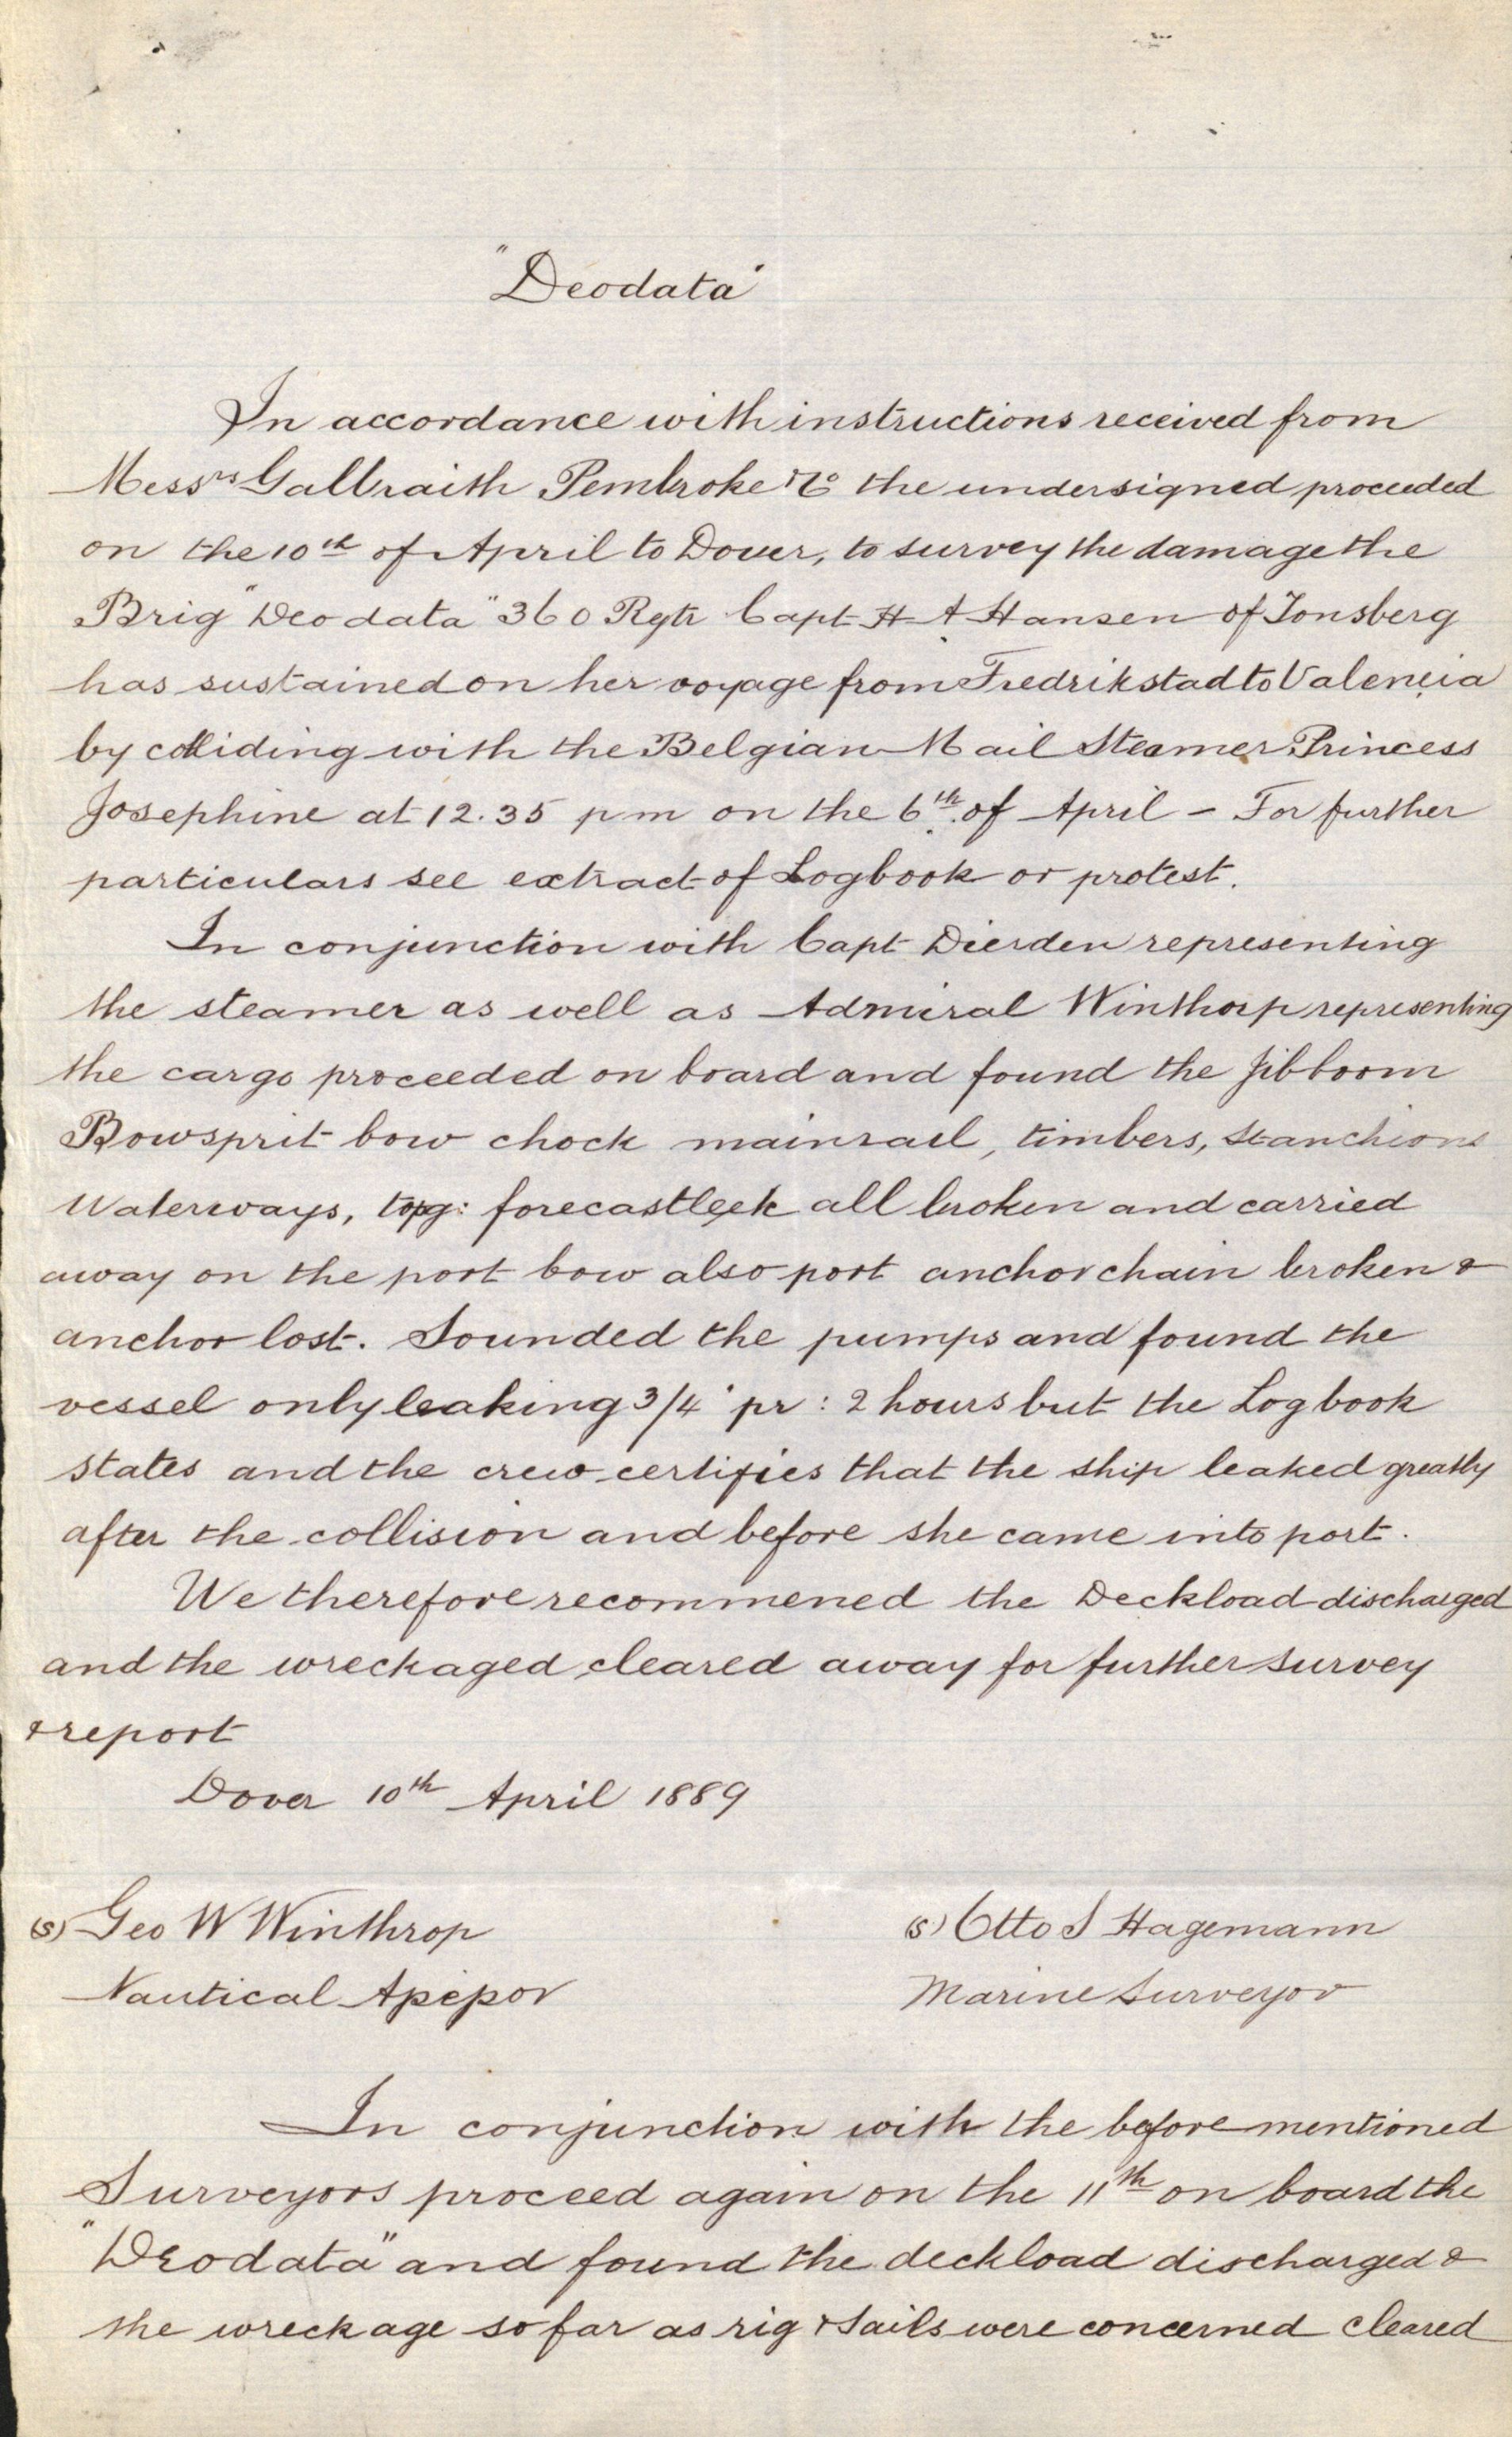 "Deodata"
In accordance with instructions received from
Messrs Galbraith Pembroke & Co the undersigned proceeded
on the 10th of April to Dover, to survey the damage the
Brig "Deodata" 360 Rgtr Capt H A Hansen of Tonsberg
has sustained on her voyage from Fredrikstad to Valencia
by colliding with the Belgian Mail Steamer Princess
Josephine at 12.35 pm on the 6th of April – For further
particulars see extract of Logbook or protest.
In conjunction with Capt Dierden representing
the steamer as well as Admiral Winthorp representing
the cargo proceeded on board and found the Jibboom
Bowsprit bow chock mainrail, timbers, stanchions
Waterways, topg: all broken and carried
away on the port bow also port anchorchain broken &
anchor lost. Sounded the pumps and found the
vessel only leaking 3/4" pr: 2 hours but the Logbook
states and the crew certifies that the ship leaked greatly
after the collision and before she came into port.
We therefore recommened the Deckload discharged
and the wreckaged cleared away for further survey
& report
Dover 10th April 1889
(s) Geo W Winthrop
(s) Otto S Hagemann
Nautical
Marine Surveyor
In conjunction with the before mentioned
Surveyors proceed again on the 11th on board the
"Deodata" and found the deckload discharged &
the wreckage so far as rig & sails were concerned cleared